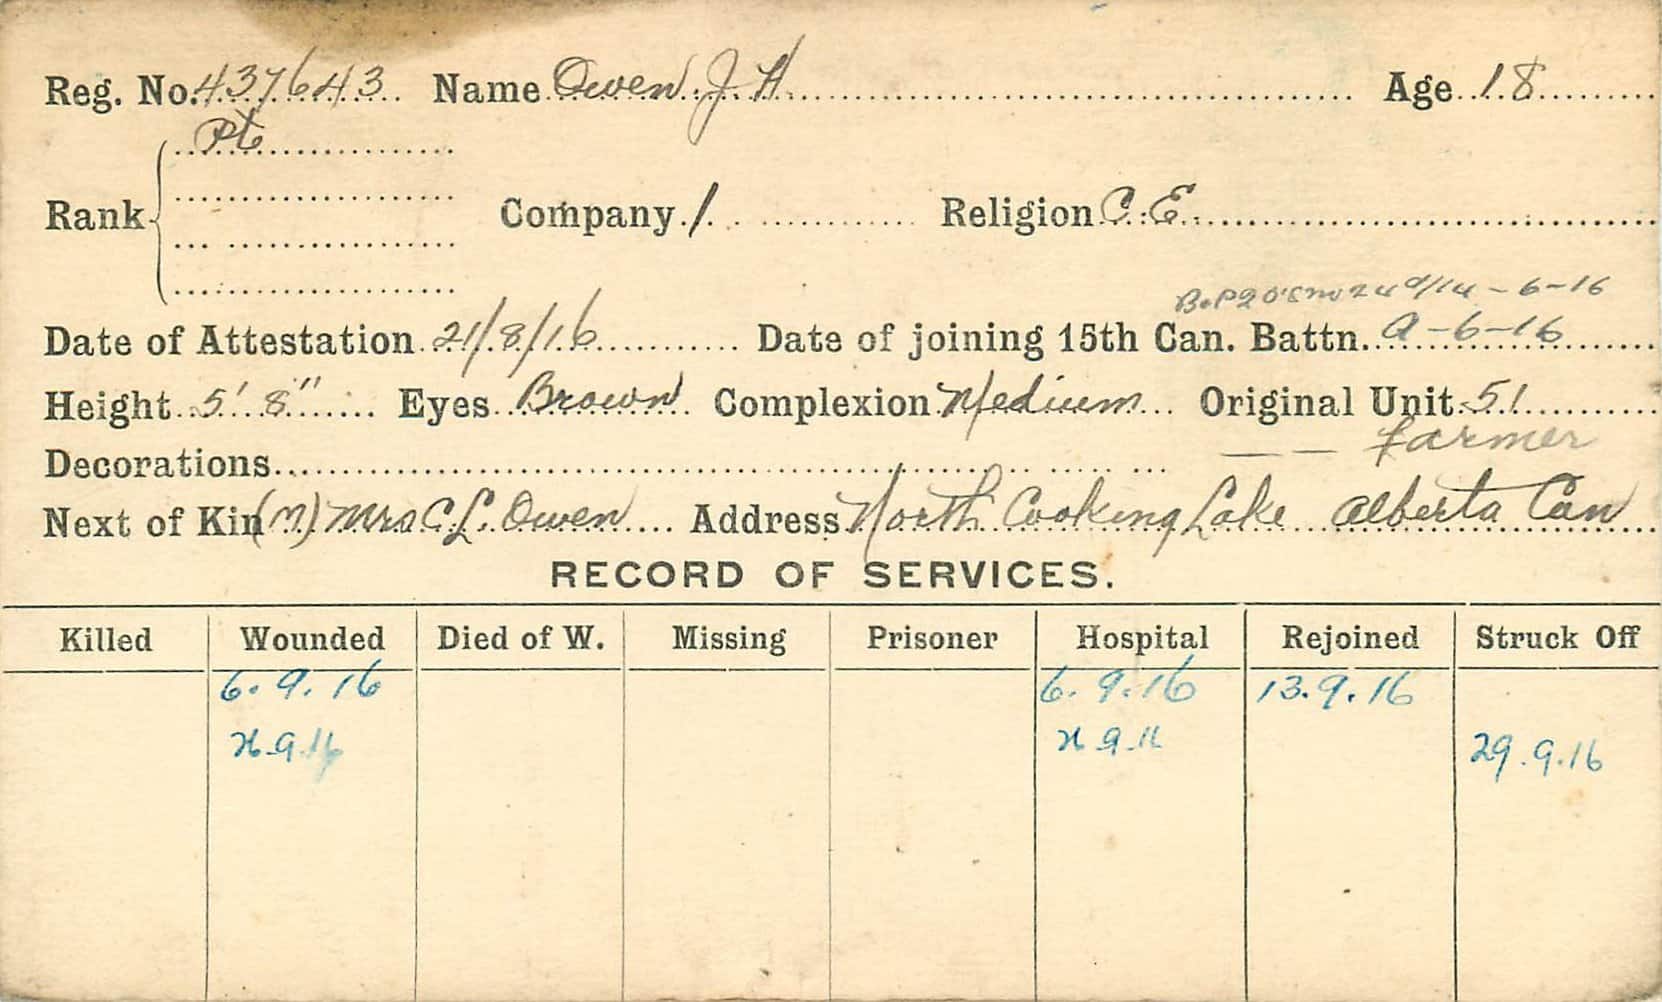 Reg. No. 437643 Name Owen J. H. Age 18
Pte
Rank Company 1 Religion C. E.
24 9/14-6-16
Date of Attestation 21/8/16 Date of joining 15th Can. Battn. 9-6-16
Height 5' 8" Eyes Brown Complexion Medium Original Unit 51
Decorations — — farmer
Next of Kin (M) Mrs C. L. Owen Address North Cooking Lake Alberta Can
RECORD OF SERVICES.
Killed Wounded Died of W. Missing Prisoner Hospital Rejoined Struck Off
6. 9. 16 6. 9. 16 13. 9. 16
26.9.16 26 9 16 29.9.16